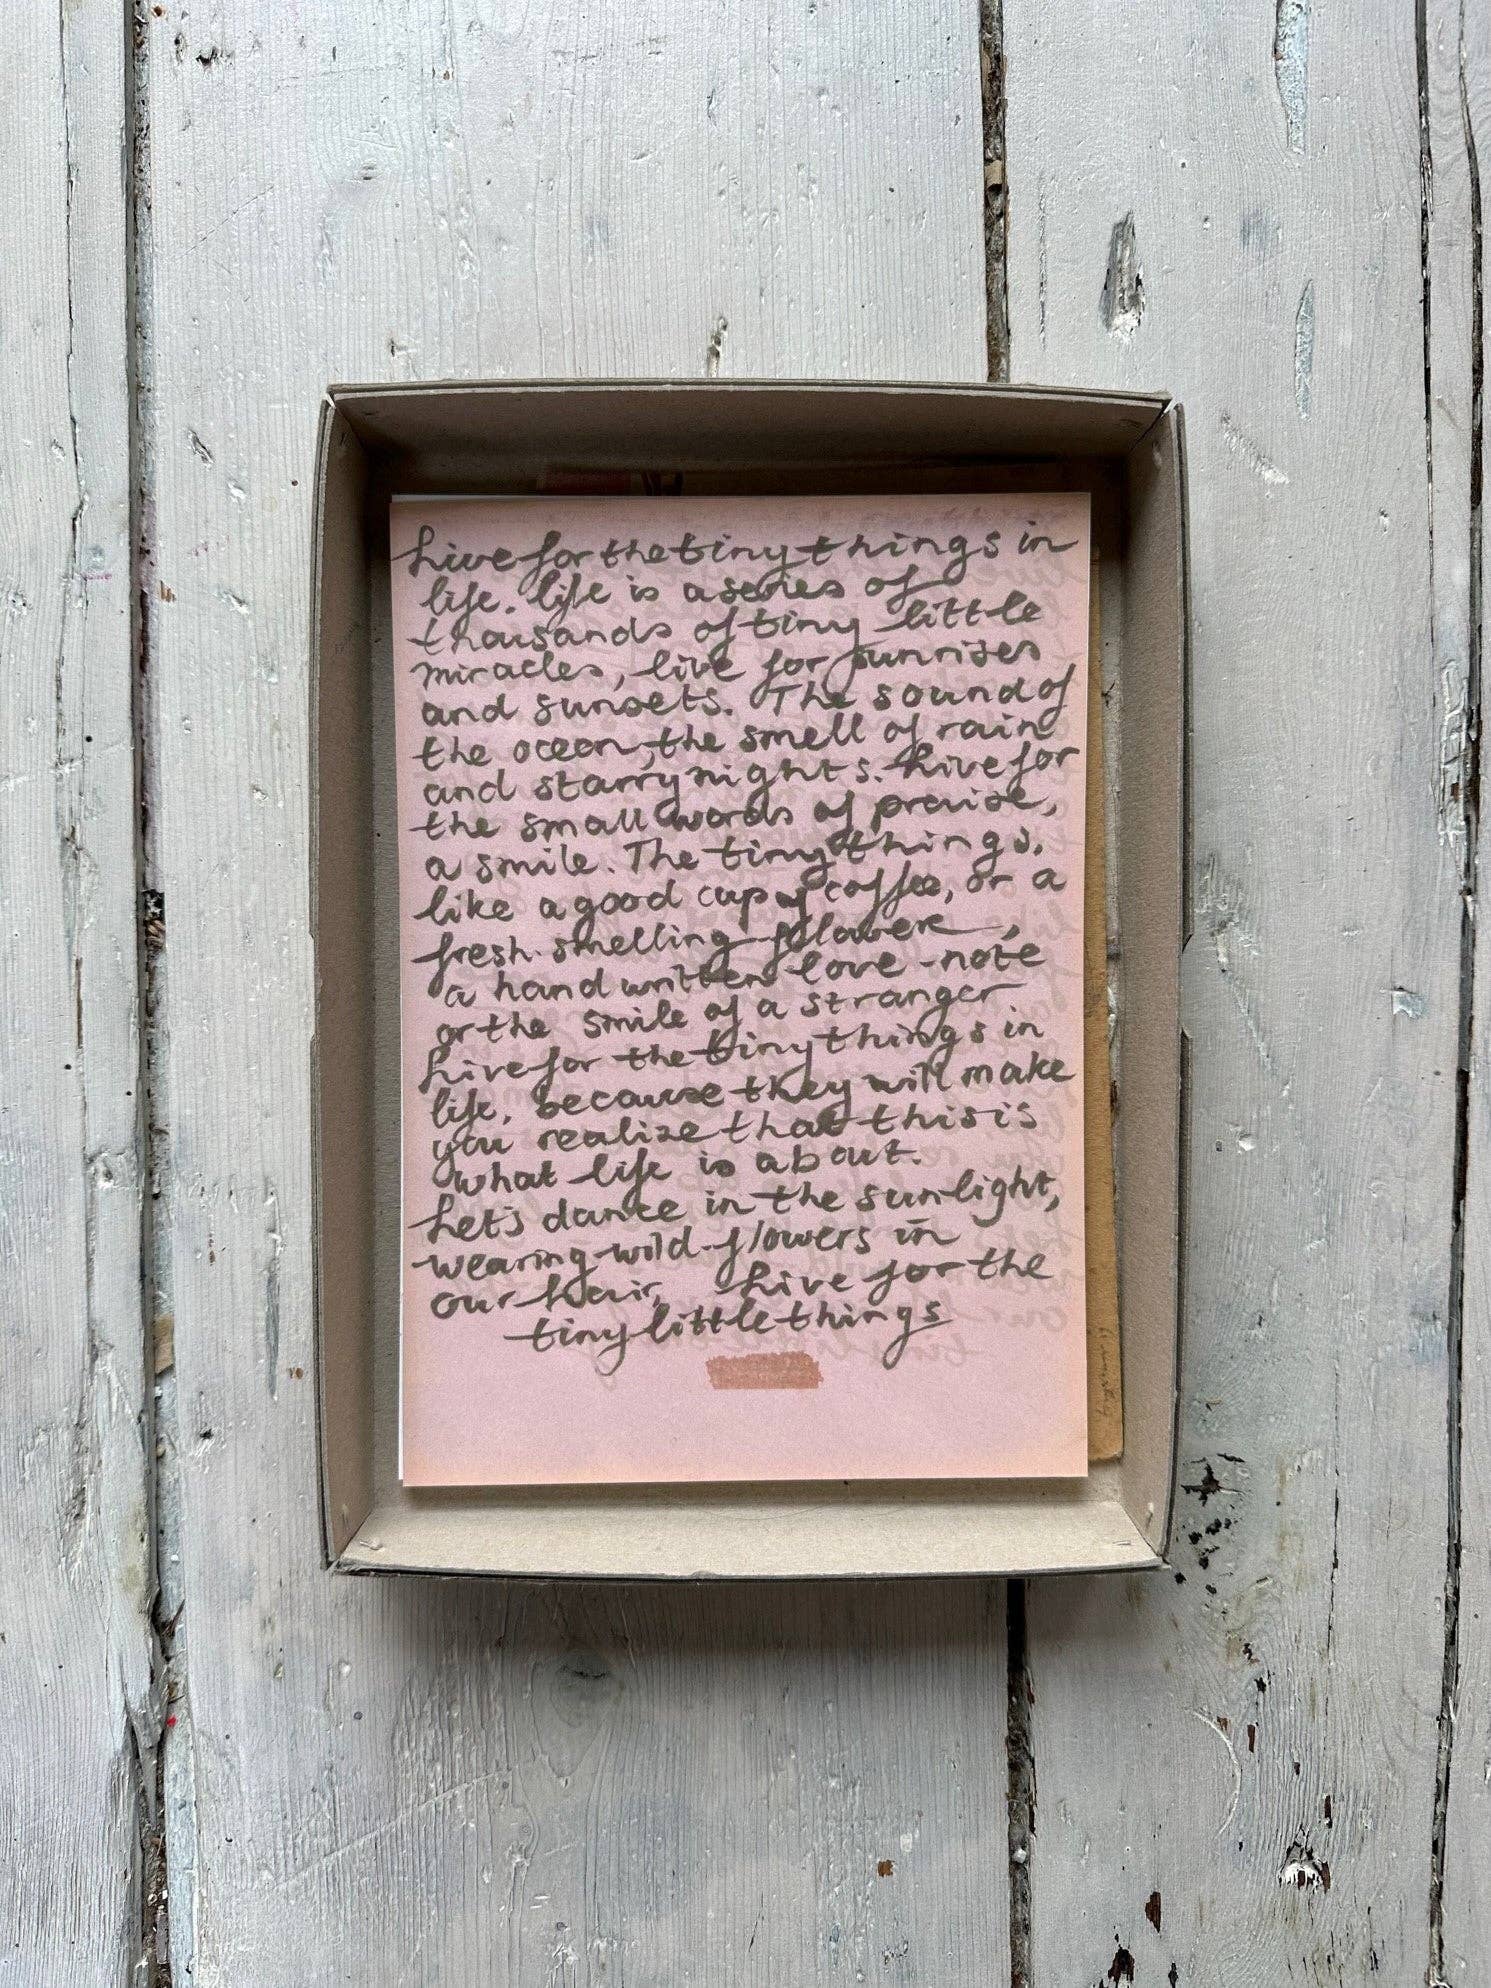 Live for the tiny things in
life. life is a series of
thousands of tiny little
miracles, live for sunrises
and sunsets. The sound of
the ocean, the smell of rain
and starry nights. Live for
the small words of praise,
a smile. The tiny things,
like a good cup of coffee, or a
fresh smelling flower,
a handwritten love-note
or the smile of a stranger
Live for the tiny things in
life, because they will make
you realize that this is
what life is about.
Let's dance in the sunlight,
wearing wild-flowers in
our hair, Live for the
tiny little things